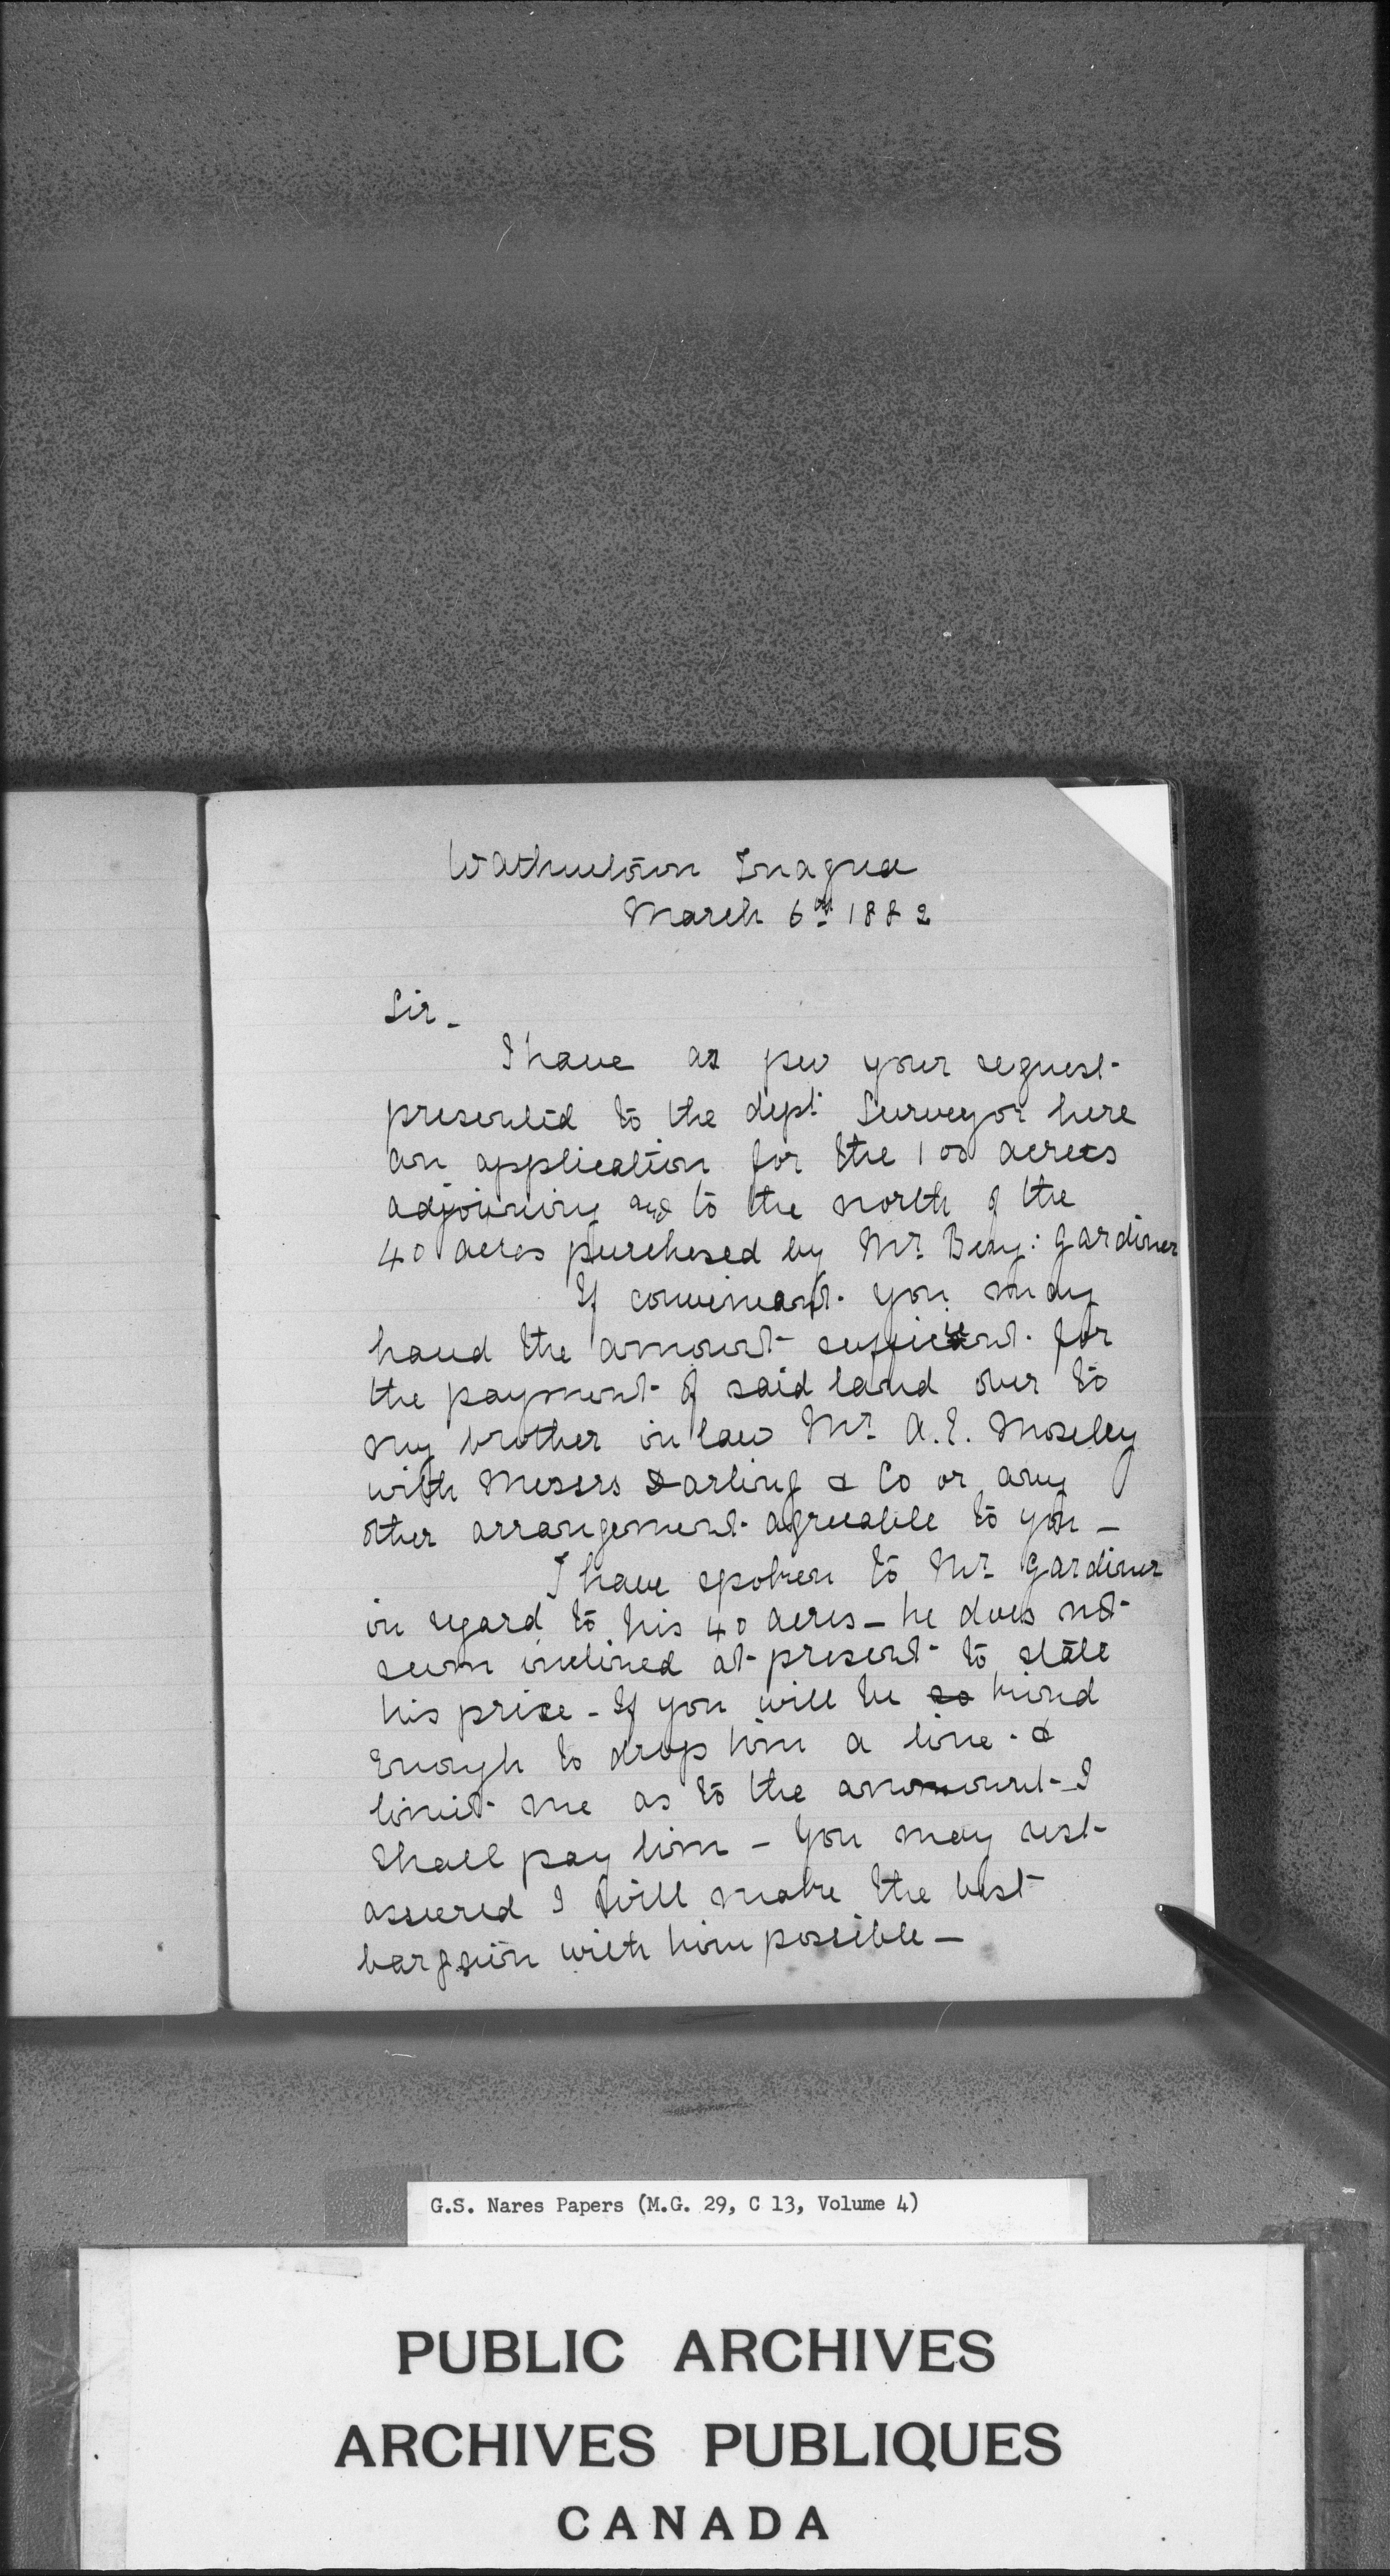 Mathewtown Inagua
March 6th 1882
Sir -
I have as per your request
presented to the dept. Surveyor here
an application for the 100 acres
adjoining and to the north of the
40 acres purchased by Mr. Benj: Gardiner
If conveniant you may
hand the amount sufficient for
the payment of said land over to
my brother in law Mr. A. E. Moseley
with Messrs Darling & Co or any
other arrangement agreeable to you -
I have spoken to Mr. Gardiner
in regard to his 40 acres - he does not
seem inclined at present to state
his price - If you will be so kind
enough to drop him a line - &
limit me as to the amount - I
shall pay him - You may rest
assured I will make the best
bargain with him possible -
G.S. Nares Papers (M.G. 29, C 13, Volume 4)
PUBLIC ARCHIVES
ARCHIVES PUBLIQUES
CANADA